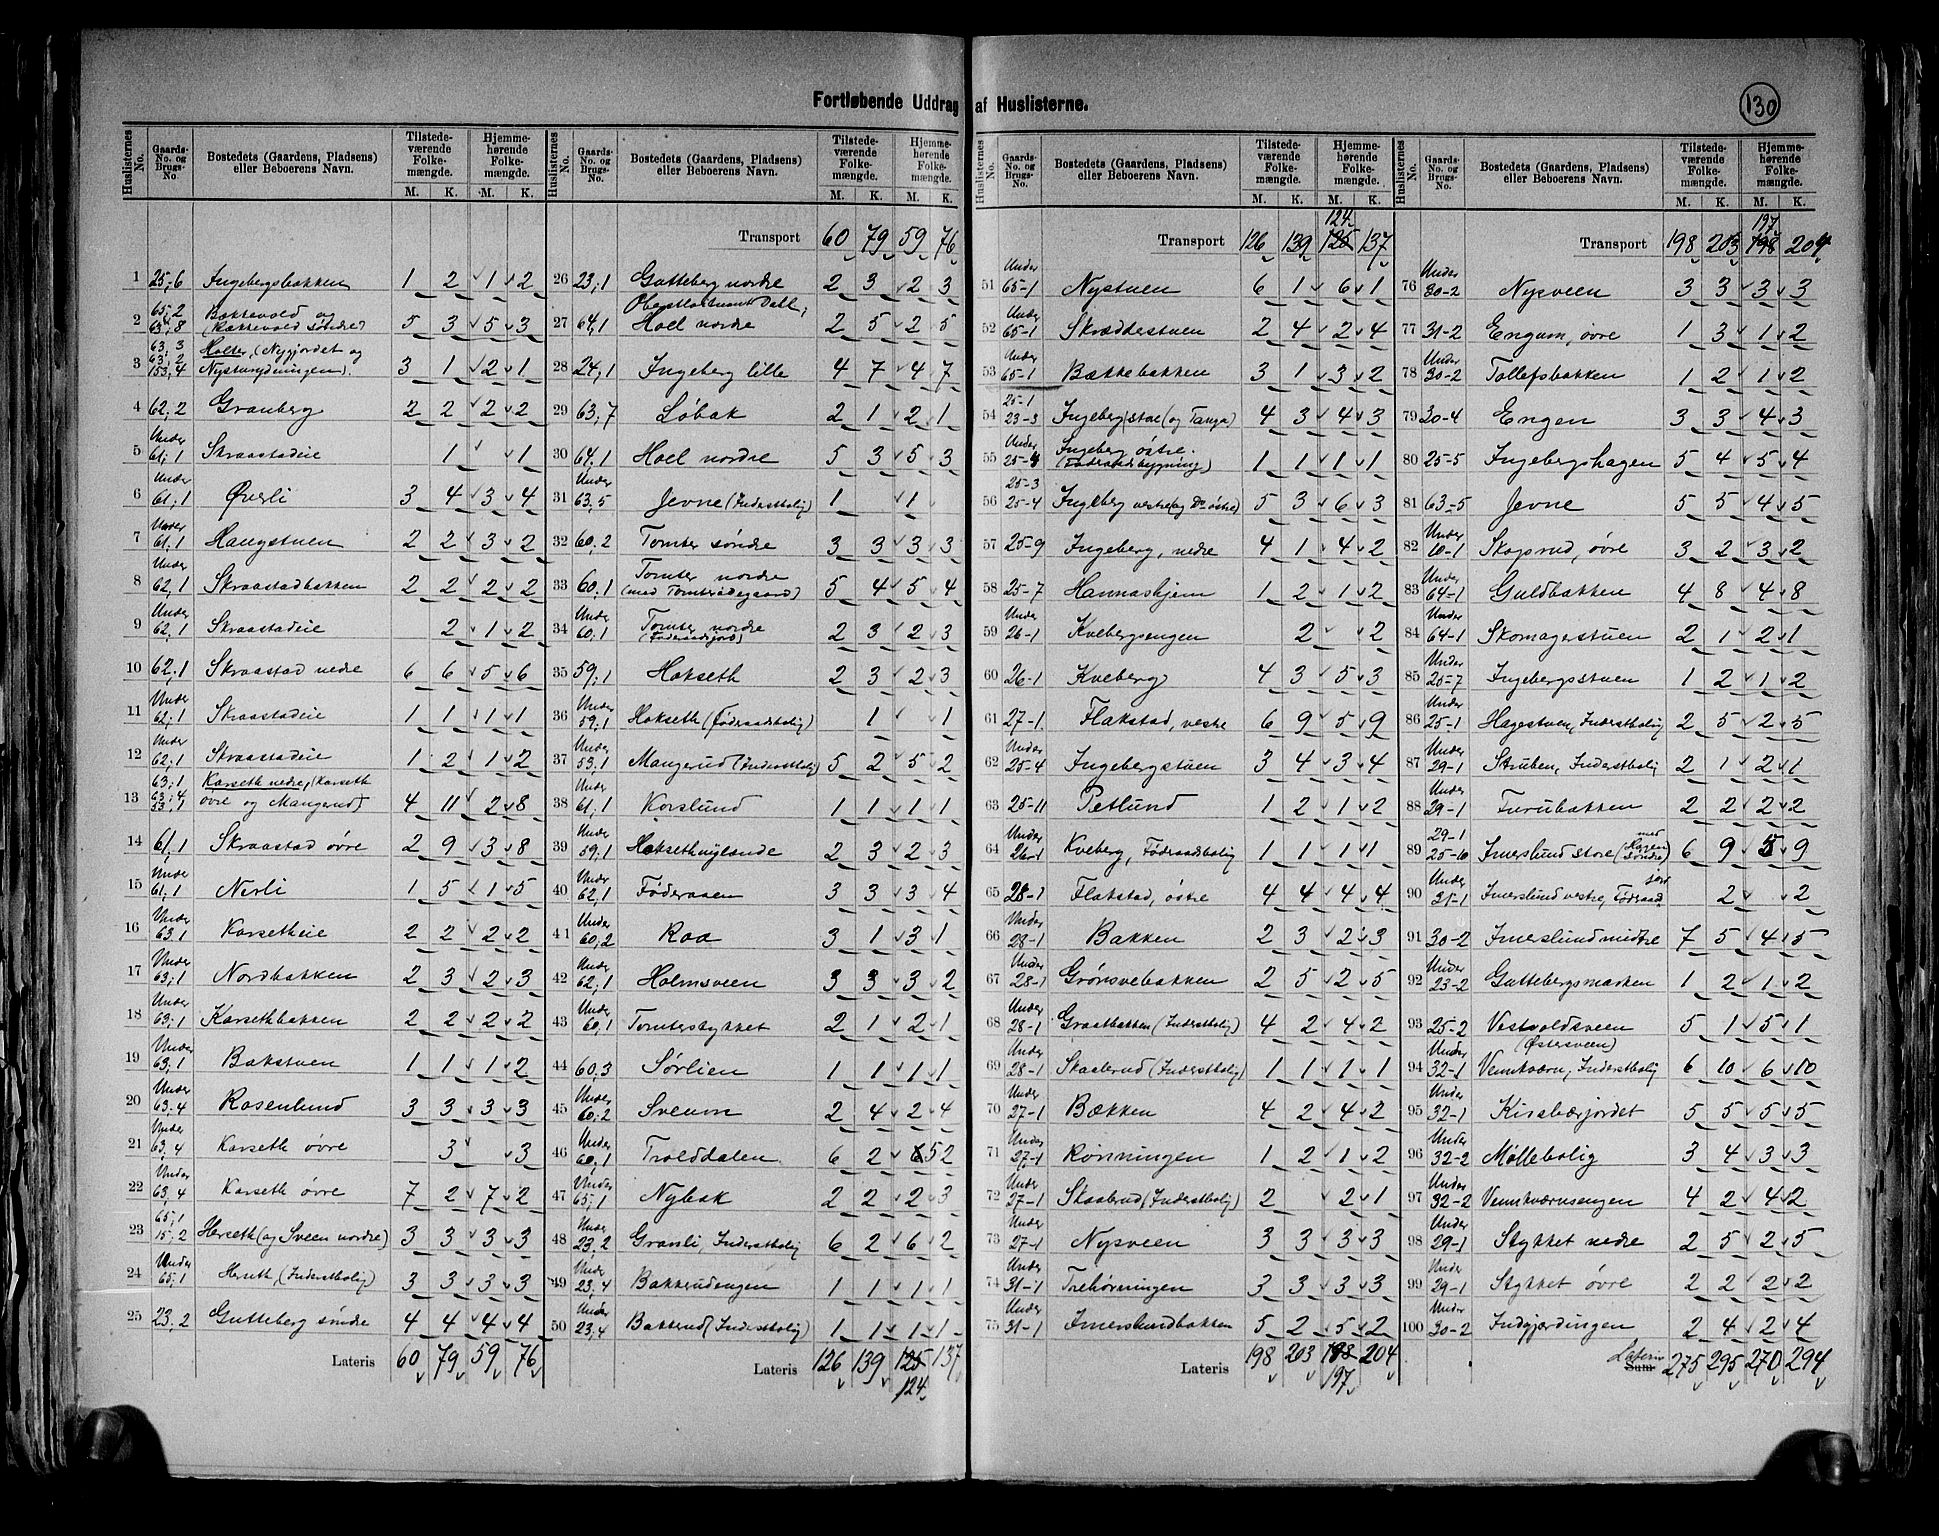 Fortløbende Uddrag af Huslisterne.
130
Huslisternes No. Gaards-No. og Brugs-No. Bostedets (Gaardens, Pladsens) eller Beboerens Navn. Tilstedeværende Folkemængde. M. K. Hjemmehørende Folkemængde. M. K.
1 25,6 Ingebergsbakken 1 2 1 2
2 65,2 63,8 Bakkevold og (Bakkevold søndre) 5 3 5 3
3 63,3 63,2 153,4 Holter, (Nygjordet og Nysturydningen). 3 1 2 1
4 62,2 Granberg 2 2 2 2
5 Under 61,1 Skraastadeie 1 1
6 Under 61,1 Øverli 3 4 3 4
7 Under 61,1 Haugstuen 2 2 3 2
8 Under 62,1 Skraastadbakken 2 2 2 2
9 Under 62,1 Skraastadeie 2 1 2
10 62,1 Skraastad nedre 6 6 5 6
11 Under 62,1 Skraastadeie 1 1 1 1
12 Under 62,1 Skraastadeie 1 2 1 2
13 63,1 63,4 53,1 Karseth nedre, (Karseth øvre og Mangerud) 4 11 2 8
14 61,1 Skraastad øvre 2 9 3 8
15 Under 61,1 Nerli 1 5 1 5
16 Under 63,1 Karsetheie 2 2 2 2
17 Under 63,1 Nordbakken 2 3 2 3
18 Under 63,1 Karsethbakken 2 2 2 2
19 Under 63,1 Bakstuen 1 1 1 2
20 Under 63,4 Rosenlund 3 3 3 3
21 Under 63,4 Karseth øvre 3 3
22 Under 63,4 Karseth øvre 7 2 7 2
23 65,1 15,2 Herseth (og Sveen nordre) 3 3 3 3
24 Under 65,1 Herseth, (Inderstbolig) 3 3 3 3
25 23,2 Gutteberg søndre 4 4 4 4
Lateris 60 79 59 76
Huslisternes No. Gaards-No. og Brugs-No. Bostedets (Gaardens, Pladsens) eller Beboerens Navn. Tilstedeværende Folkemængde. M. K. Hjemmehørende Folkemængde. M. K.
Transport 60 79 59 76
26 23,1 Gutteberg nordre 2 3 2 3
27 64,1 Hoel nordre 2 5 2 5
28 24,1 Ingeberg lille 4 7 4 7
29 63,7 Løbak 2 1 2 1
30 64,1 Hoel nordre 5 3 5 3
31 Under 63,5 Jevne (Inderstbolig) 1 1
32 60,2 Tomter søndre 3 3 3 3
33 60,1 Tomter nordre (med Tomterødegaard) 5 4 5 4
34 Under 60,1 Tomter nordre (Føderaadsjord) 2 3 2 3
35 59,1 Hokseth 2 3 2 3
36 Under 59,1 Hokseth (Føderaadbolig) 1 1
37 Under 53,1 Mangerud (Inderstbolig) 5 2 5 2
38 Under 61,1 Korslund 1 1 1 1
39 Under 59,1 Hoksethnylænde 2 3 2 3
40 Under 62,1 Føderaaen 3 3 3 4
41 Under 60,2 Roa 3 1 3 1
42 Under 62,1 Holmsveen 3 3 3 2
43 Under 60,1 Tomterstykket 2 1 2 1
44 60,3 Sørlien 1 1 1 1
45 Under 60,2 Sveum 2 4 2 4
46 Under 60,1 Trolddalen 6 2 6 5 2
47 Under 65,1 Nybak 2 2 2 3
48 Under 23,2 Granli, Inderstbolig 6 2 6 2
49 Under 23,4 Bakkerudengen 1 1 1 1
50 Under 23,4 Bakkerud (Inderstbolig) 1 1 1 1
Lateris 126 139 125 137
124
Huslisternes No. Gaards-No. og Brugs-No. Bostedets (Gaardens, Pladsens) eller Beboerens Navn. Tilstedeværende Folkemængde. M. K. Hjemmehørende Folkemængde. M. K.
124
Transport 126 139 125 137
51 Under 65-1 Nystuen 6 1 6 1
52 Under 65-1 Skræddestuen 2 4 2 4
53 Under 65-1 Bækkebakken 3 1 3 2
54 25-1 23-3 Ingeberg store (og Tanga) 4 3 4 3
55 Under 25-4 Ingeberg østre. (Føderaadsbygning) 1 1 1 1
56 25-3 25-4 Ingeberg vestre (og Do østre) 5 3 6 3
57 25-9 Ingeberg, nedre 4 1 4 2
58 25-7 Hannashjem 1 2 1 2
59 Under 26-1 Kvebergsengen 2 2
60 26-1 Kveberg 4 3 5 3
61 27-1 Flakstad, vestre 6 9 5 9
62 Under 25-4 Ingebergstuen 3 4 3 4
63 25-11 Petlund 1 2 1 2
64 Under 26-1 Kveberg, Føderaadbolig 1 1 1 1
65 28-1 Flakstad, østre 4 4 4 4
66 Under 28-1 Bakken 2 3 2 3
67 Under 28-1 Grønsvebakken 2 5 2 5
68 Under 28-1 Graatbakken (Inderstbolig) 4 2 4 2
69 Under 28-1 Skaaberud (Inderstbolig) 1 1 1 1
70 Under 27-1 Bækken 4 2 4 2
71 Under 27-1 Rønningen 1 2 1 2
72 Under 27-1 Skaabrud (Inderstbolig) 2 2 1
73 Under 27-1 Nysveen 3 3 3 3
74 Under 31-1 Trehørningen 3 3 3 3
75 Under 31-1 Imerslundbakken 5 2 5 2
Lateris 198 203 198 204
197
Huslisternes No. Gaards-No. og Brugs-No. Bostedets (Gaardens, Pladsens) eller Beboerens Navn. Tilstedeværende Folkemængde. M. K. Hjemmehørende Folkemængde. M. K.
197
Transport 198 203 198 204
76 Under 30-2 Nysveen 3 3 3 3
77 31-2 Engum, øvre 1 3 1 2
78 Under 30-2 Tollefsbakken 1 2 1 2
79 30-4 Engen 3 3 4 3
80 25-5 Ingebergshagen 5 4 5 4
81 63-5 Jevne 5 5 4 5
82 Under 10-1 Skogsrud, øvre 3 2 3 2
83 Under 64-1 Guldbakken 4 8 4 8
84 Under 64-1 Skomagerstuen 2 1 2 1
85 Under 25-7 Ingebergsstuen 1 2 1 2
86 Under 25-1 Hagestuen, Inderstbolig 2 5 2 5
87 Under 29-1 Struben, Inderstbolig 2 1 2 1
88 Under 29-1 Furubakken 2 2 2 2
89 29-1 25-10 Imerslund store (med Hagen søndre) 6 9 5 9
90 Under 31-1 Imerslund vestre, Føderaad 2 2
91 30-2 Imerslund midtre 7 5 4 5
92 Under 23-2 Guttebergsmarken 1 2 1 2
93 Under 25-2 Vestvoldsveen (Østersveen) 5 1 5 1
94 Under 32-1 Vennkværn, Inderstbolig 6 10 6 10
95 Under 32-1 Kirsebærjordet 5 5 5 5
96 Under 32-2 Møllebolig 3 4 3 3
97 Under 32-2 Vennkværnsengen 4 2 4 2
98 Under 29-1 Stykket nedre 2 5 2 5
99 Under 29-1 Stykket øvre 2 2 2 2
100 Under 30-2 Indgjærdingen 2 4 2 4
Lateris Sum 275 295 270 294